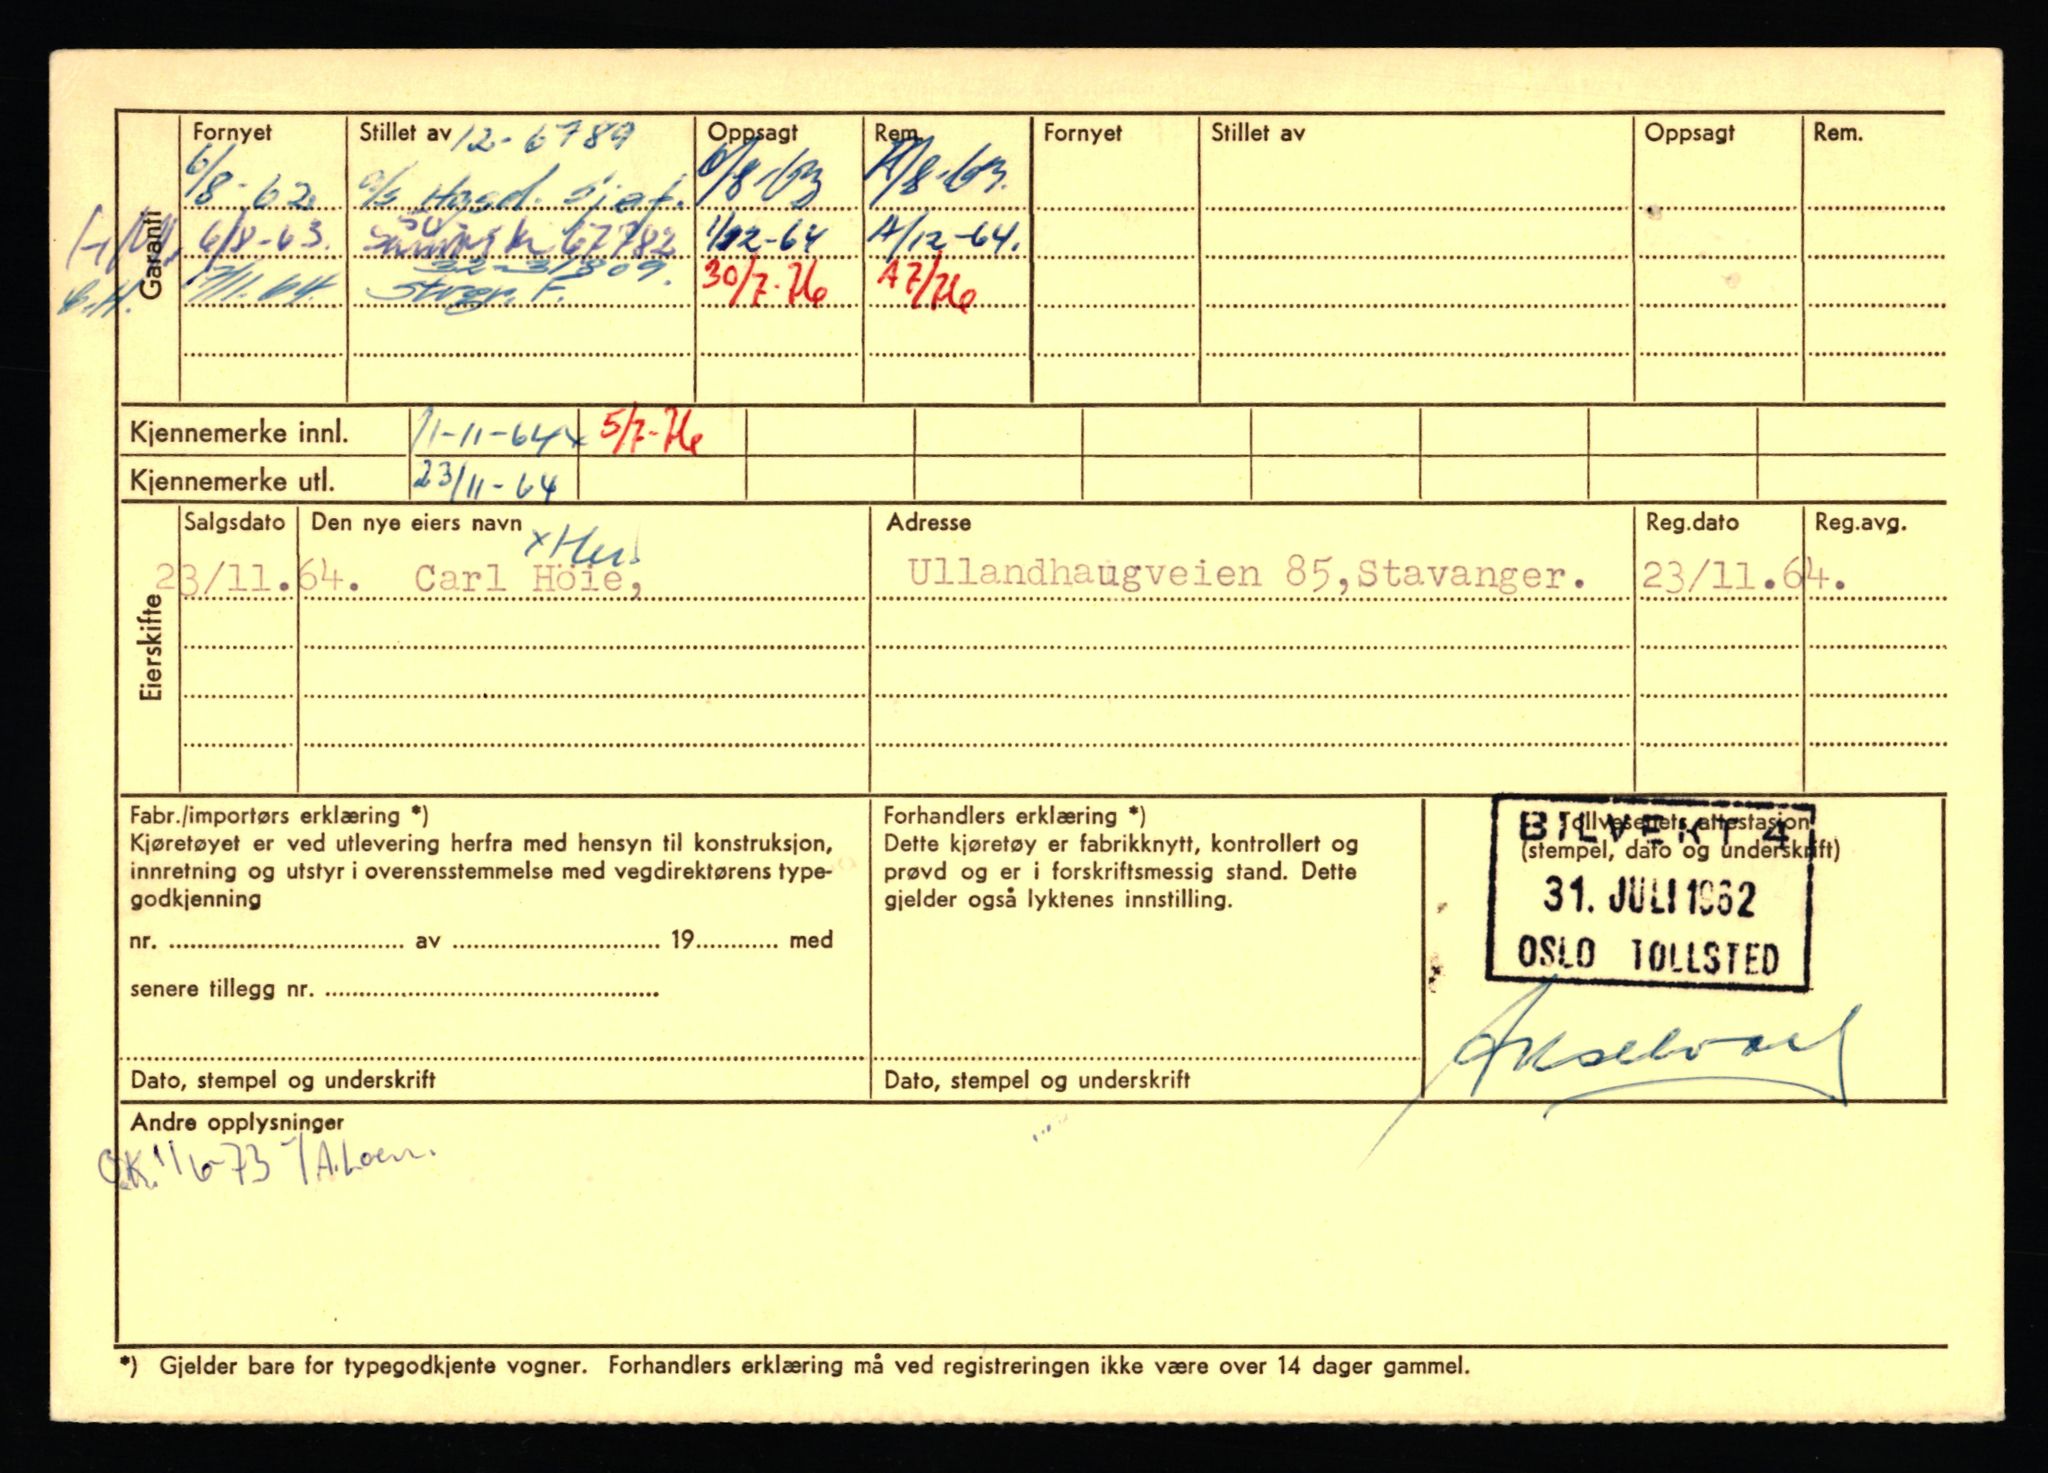 Garanti
Fornyet Stillet av 12-6789 Oppsagt Rem. Fornyet Stillet av Oppsagt Rem.
6/8-62 a/s 6/8-63 A/8-63.
6/8-63. 67782 1/12-64 A/12-64.
32-31809.
7/11.64. Stvgr. F. 30/7-76 A7/76
Kjennemerke innl. 11-11-64x 5/7-76
Kjennemerke utl. 23/11-64
Eierskifte
Salgsdato Den nye eiers navn Adresse Reg.dato Reg.avg.
23/11.64. Carl Höie, Ullandhaugveien 85,Stavanger. 23/11.64.
Fabr./importørs erklæring *)
Kjøretøyet er ved utlevering herfra med hensyn til konstruksjon,
innretning og utstyr i overensstemmelse med vegdirektørens type-
godkjenning
nr. .......... av .......... 19.......... med
senere tillegg nr. ..........
Dato, stempel og underskrift
Forhandlers erklæring *)
Dette kjøretøy er fabrikknytt, kontrollert og
prøvd og er i forskriftsmessig stand. Dette
gjelder også lyktenes innstilling.
Dato, stempel og underskrift
Tollvesenets attestasjon
(stempel, dato og underskrift)
BILVEKT 4
31. JULI 1962
OSLO TOLLSTED
Andre opplysninger
O.K. 1/6-73
*) Gjelder bare for typegodkjente vogner. Forhandlers erklæring må ved registreringen ikke være over 14 dager gammel.